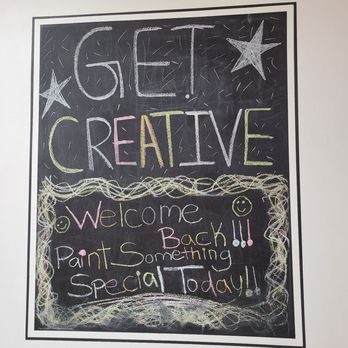 GET
CREATIVE
Welcome
Back!!!
Paint Something
Special Today!!